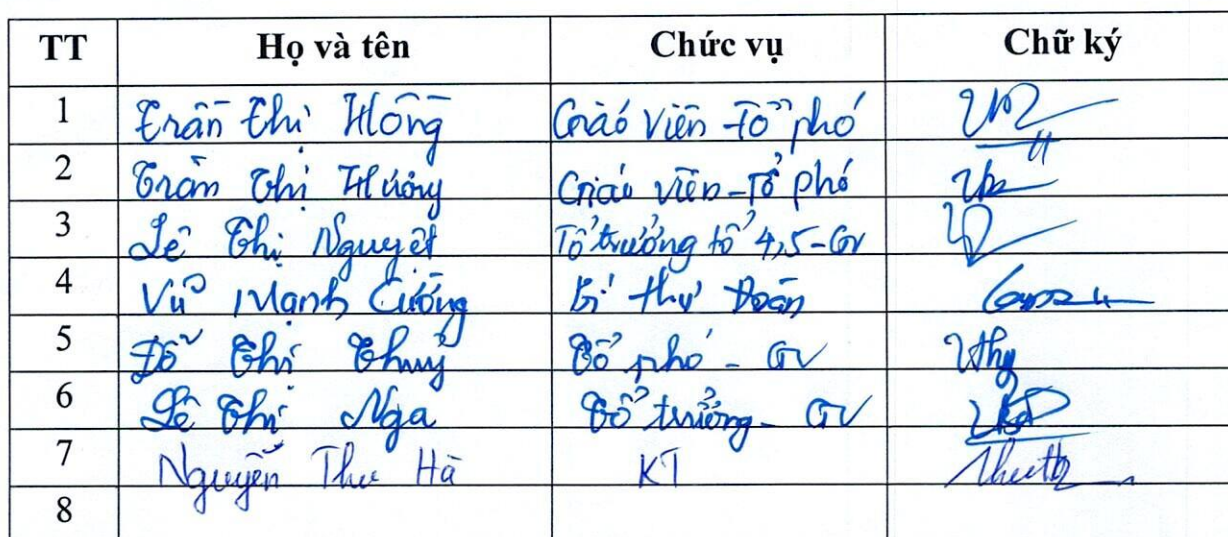 TT Họ và tên Chức vụ Chữ ký
1 Trần Thị Hồng Giáo viên - Tổ phó
2 Trần Thị Hương Giáo viên - Tổ phó
3 Lê Thị Nguyệt Tổ trưởng tổ 4,5 - GV
4 Vũ Mạnh Cường Bí thư Đoàn
5 Đỗ Thị Thuỷ Tổ phó - GV
6 Lê Thị Nga Tổ trưởng - GV
7 Nguyễn Thu Hà KT
8